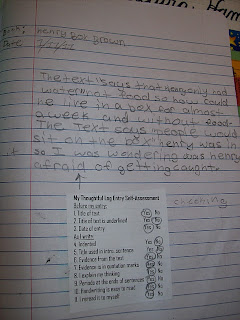 Book: henry box brown
Date
The text says that henry only had
water not food so how could
he live in a box for almost
a week and without food.
The text says people would
sit on the box henry was in
so I was wondering was henry
afraid of getting caught.
checking
My Thoughtful Log Entry Self-Assessment
Before my entry:
1. Title of text Yes No
2. Title of text is underlined Yes No
3. Date of entry Yes No
4. Indented Yes No
5. Title used in intro. sentence Yes No
6. Evidence from the text Yes No
7. Evidence is in quotation marks Yes No
8. I explain my thinking Yes No
9. Periods at the ends of sentences Yes No
10. Handwriting is easy to read Yes No
11. I reread it to myself Yes No